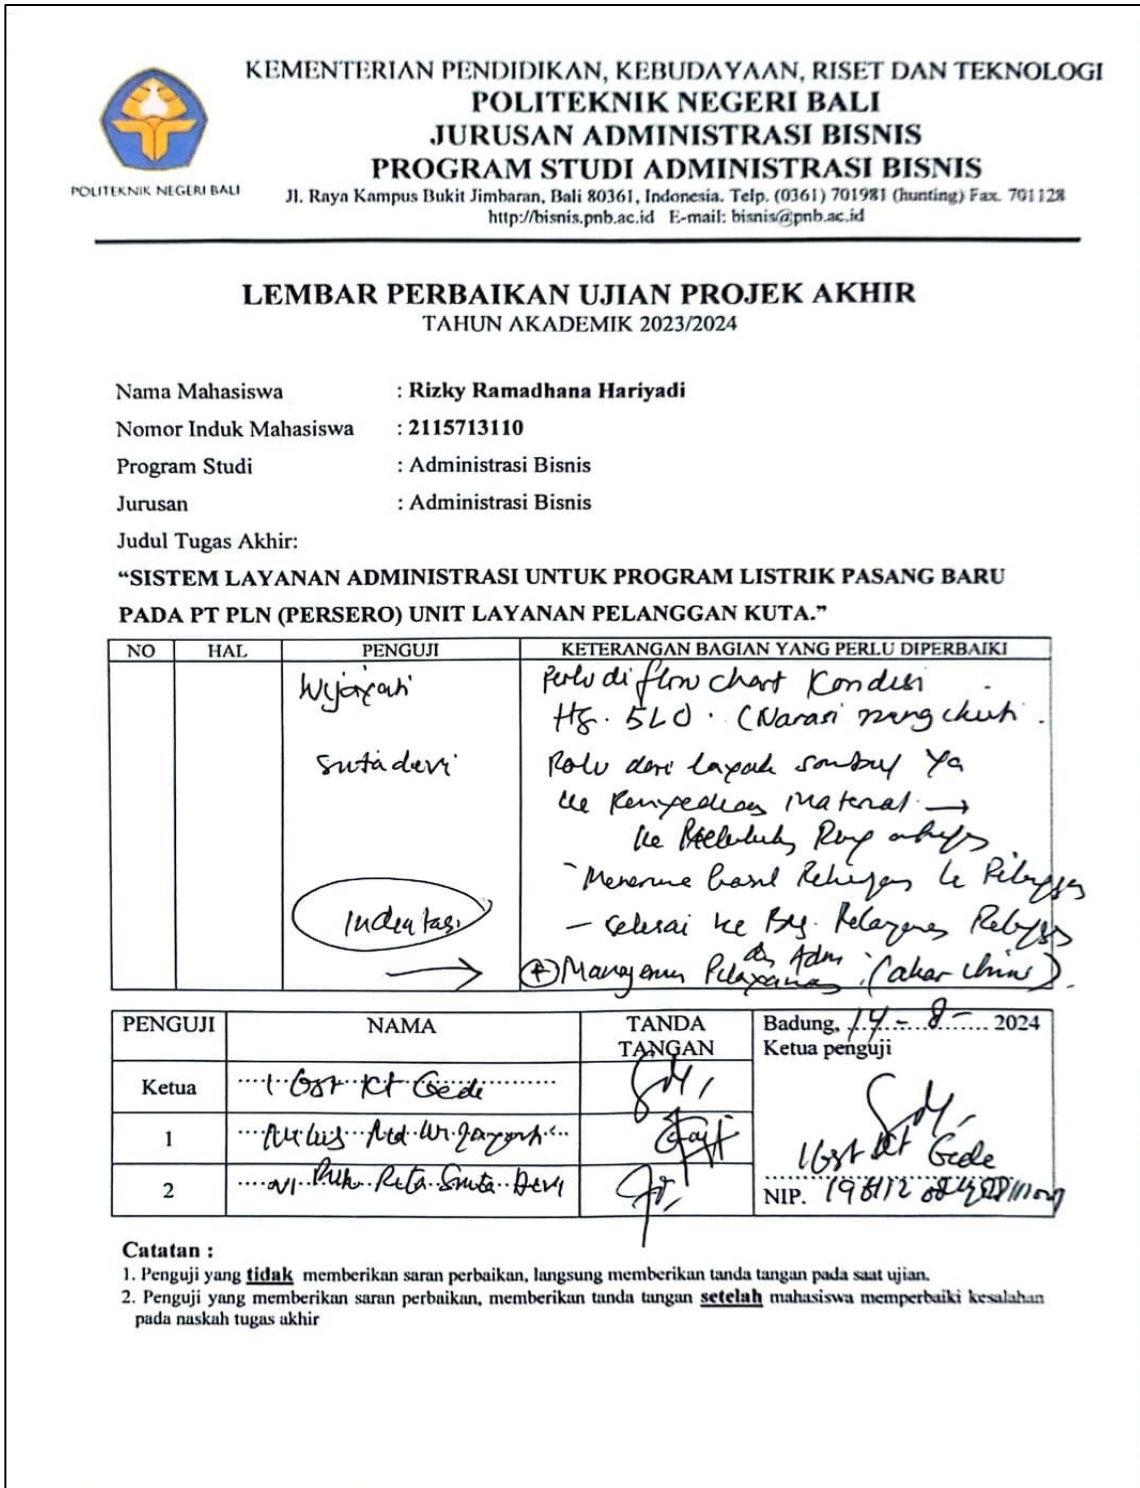 KEMENTERIAN PENDIDIKAN, KEBUDAYAAN, RISET DAN TEKNOLOGI
POLITEKNIK NEGERI BALI
JURUSAN ADMINISTRASI BISNIS
PROGRAM STUDI ADMINISTRASI BISNIS
POLITEKNIK NEGERI BALI
Jl. Raya Kampus Bukit Jimbaran, Bali 80361, Indonesia. Telp. (0361) 701981 (hunting) Fax. 701128
http://bisnis.pnb.ac.id E-mail: bisnis@pnb.ac.id
LEMBAR PERBAIKAN UJIAN PROJEK AKHIR
TAHUN AKADEMIK 2023/2024
Nama Mahasiswa : Rizky Ramadhana Hariyadi
Nomor Induk Mahasiswa : 2115713110
Program Studi : Administrasi Bisnis
Jurusan : Administrasi Bisnis
Judul Tugas Akhir:
“SISTEM LAYANAN ADMINISTRASI UNTUK PROGRAM LISTRIK PASANG BARU
PADA PT PLN (PERSERO) UNIT LAYANAN PELANGGAN KUTA.”
NO HAL PENGUJI KETERANGAN BAGIAN YANG PERLU DIPERBAIKI
Wijayati Perlu di flow chart Kondisi
SLO. (Narasi
Sutadevi layak Ya
ke material →
ke
Menerima hasil ke
Indentasi – selesai ke
→ dan Adm
+ (akar
PENGUJI NAMA TANDA TANGAN
Badung, 14 - 8 - 2024
Ketua penguji
Ketua I Gst Kt Gede
1
2 Ni Puth Rita Sinta Devi
I Gst Kt Gede
NIP.
Catatan :
1. Penguji yang tidak memberikan saran perbaikan, langsung memberikan tanda tangan pada saat ujian.
2. Penguji yang memberikan saran perbaikan, memberikan tanda tangan setelah mahasiswa memperbaiki kesalahan
pada naskah tugas akhir